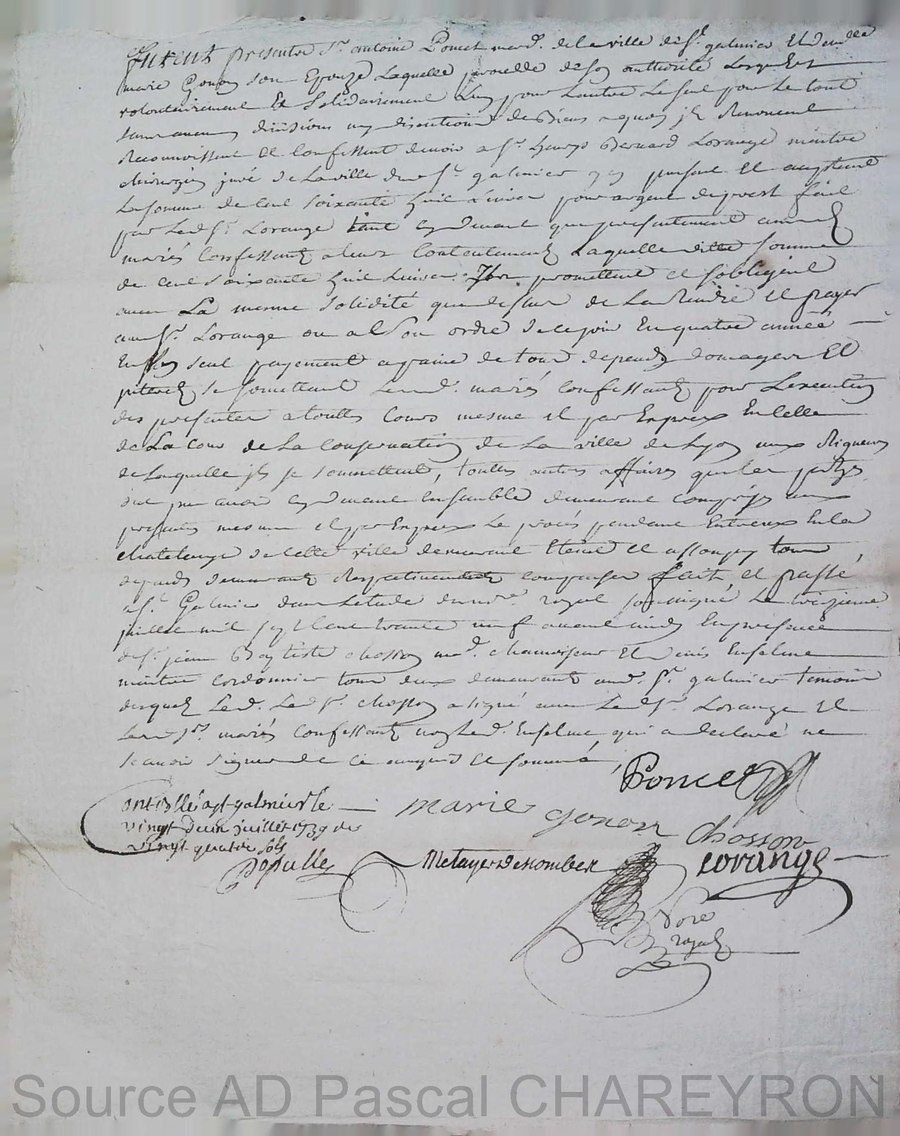 furent presents Sr. antoine Poncet mard. de la ville de St. galmier Et delle
marie Gonon son Epouze laquelle procedde de son authorité lesquels
volontairement Et solidairement L'un pour Lautre Le seul pour le tout
sans aucune division ny discution de biens a quoy ils Renoncent
Reconnoissent Et Confessent devoir a Sr. Bernard Lorange maitre
chirurgien juré de la ville de St. galmier y present Et acceptant
La somme de Cent soixante huit Livres pour argent de prest fait
par Ledt. Sr. Lorange tant cy devant que presentement auxd.
mariés Confessants a leur Contentement Laquelle ditte somme
de Cent soixante huit Livres Ils promettent et sobligent
avec La mesme solidité que dessus de La Rendre Et payer
aud. Sr. Lorange ou a son ordre dicy En quatre années
En un seul payement a paine de tous depends domages Et
interets se somettant Lesd. mariés Confessants pour Lexecution
des presentes a touttes Cours mesme et par Exprex En Celle
de La Cour de La Conservation de La ville de Lyon aux Rigueurs
de Laquelle ils se somettent, touttes autres affaires que les parties
ont pu avoir cy devant Ensemble demeurant Comprises aux
presentes mesme et par Exprex Le procès pendant Entreux En la
chatelenye de Cette ville demeurant Eteint Et assoupy tous
depends demeurants Respectivement Compensés fait et passé
a St. Galmier dans Letude du nore. royal soussigné Le treizieme
juillet mil sept Cent trente neuf avant midy En presence
de Sr. jean Baptiste chosson md. chamoiseur Et Enselme
maitre Cordonnier tous deux demeurants aud. St. galmier temoins
desquels Led. Sr. chosson a signé avec Ledt. Sr. Lorange Et
Lesd. mariés Confessants non Led. Enselme qui a declaré ne
scavoir signer de ce enquis et sommé
Poncet
marie gonon
chosson
Lorange
Controllé a st galmier le
vingt deux juillet 1739 Reçu
vingt quatre sols
Populle
nore
royal
Source AD Pascal CHAREYRON